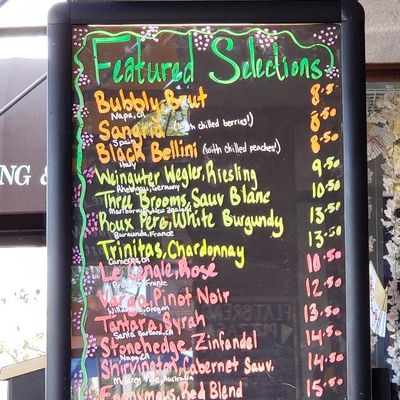 Featured Selections
Bubbly Brut 8.50
Napa, CA
Sangria (with chilled berries!) 8.50
Spain
Black Bellini (with chilled peaches!) 8.50
Italy
Weingauter Wegler, Riesling 9.50
Rheingau, Germany
Three Brooms, Sauv Blanc 10.50
Marlborough, New Zealand
Roux Pere, White Burgundy 13.50
Burgundy, France
Trinitas, Chardonnay 13.50
Carneros, CA
Rose 10.50
France
Pinot Noir 12.50
Willamette, Oregon
Tantara, Syrah 13.50
Santa Barbara, CA
Stonehedge, Zinfandel 14.50
Napa, CA
Shirvington, Cabernet Sauv. 14.50
McLaren Vale, Australia
Eponymous, Red Blend 15.50
NG &